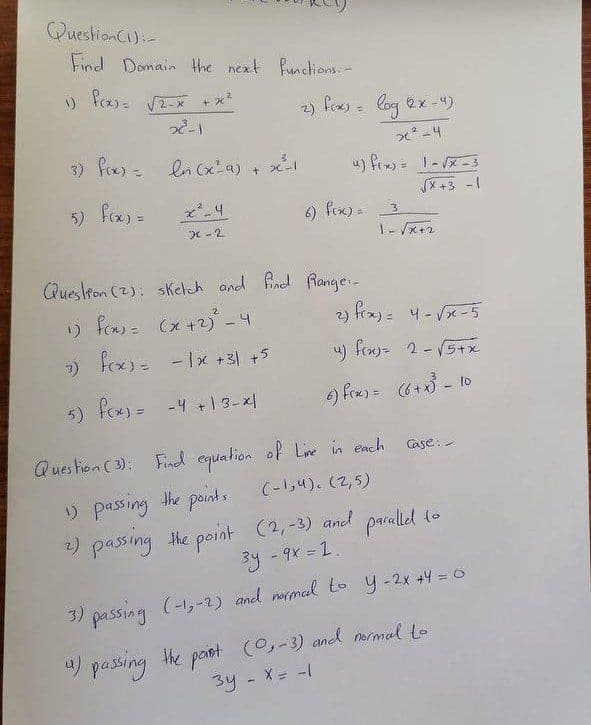 Question(1):-
Find Domain the next functions.-
1) f(x) = √2-x + x² / x³-1
2) f(x) = log (2x-4) / x²-4
3) f(x) = ln (x²-9) + x³-1
4) f(x) = 1-√x-3 / √x+3 -1
5) f(x) = x²-4 / x-2
6) f(x) = 3 / 1-√x+2
Question(2): sketch and find Range:-
1) f(x) = (x+2)² - 4
2) f(x) = 4-√x-5
3) f(x) = -|x+3| +5
4) f(x) = 2-√5+x
5) f(x) = -4 + |3-x|
6) f(x) = (6+x)³ - 10
Question(3): Find equation of Line in each case:-
1) passing the points (-1,4), (2,5)
2) passing the point (2,-3) and parallel to
3y - 9x = 1.
3) passing (-1,-2) and normal to y-2x+4=0
4) passing the point (0,-3) and normal to
3y - x = -1